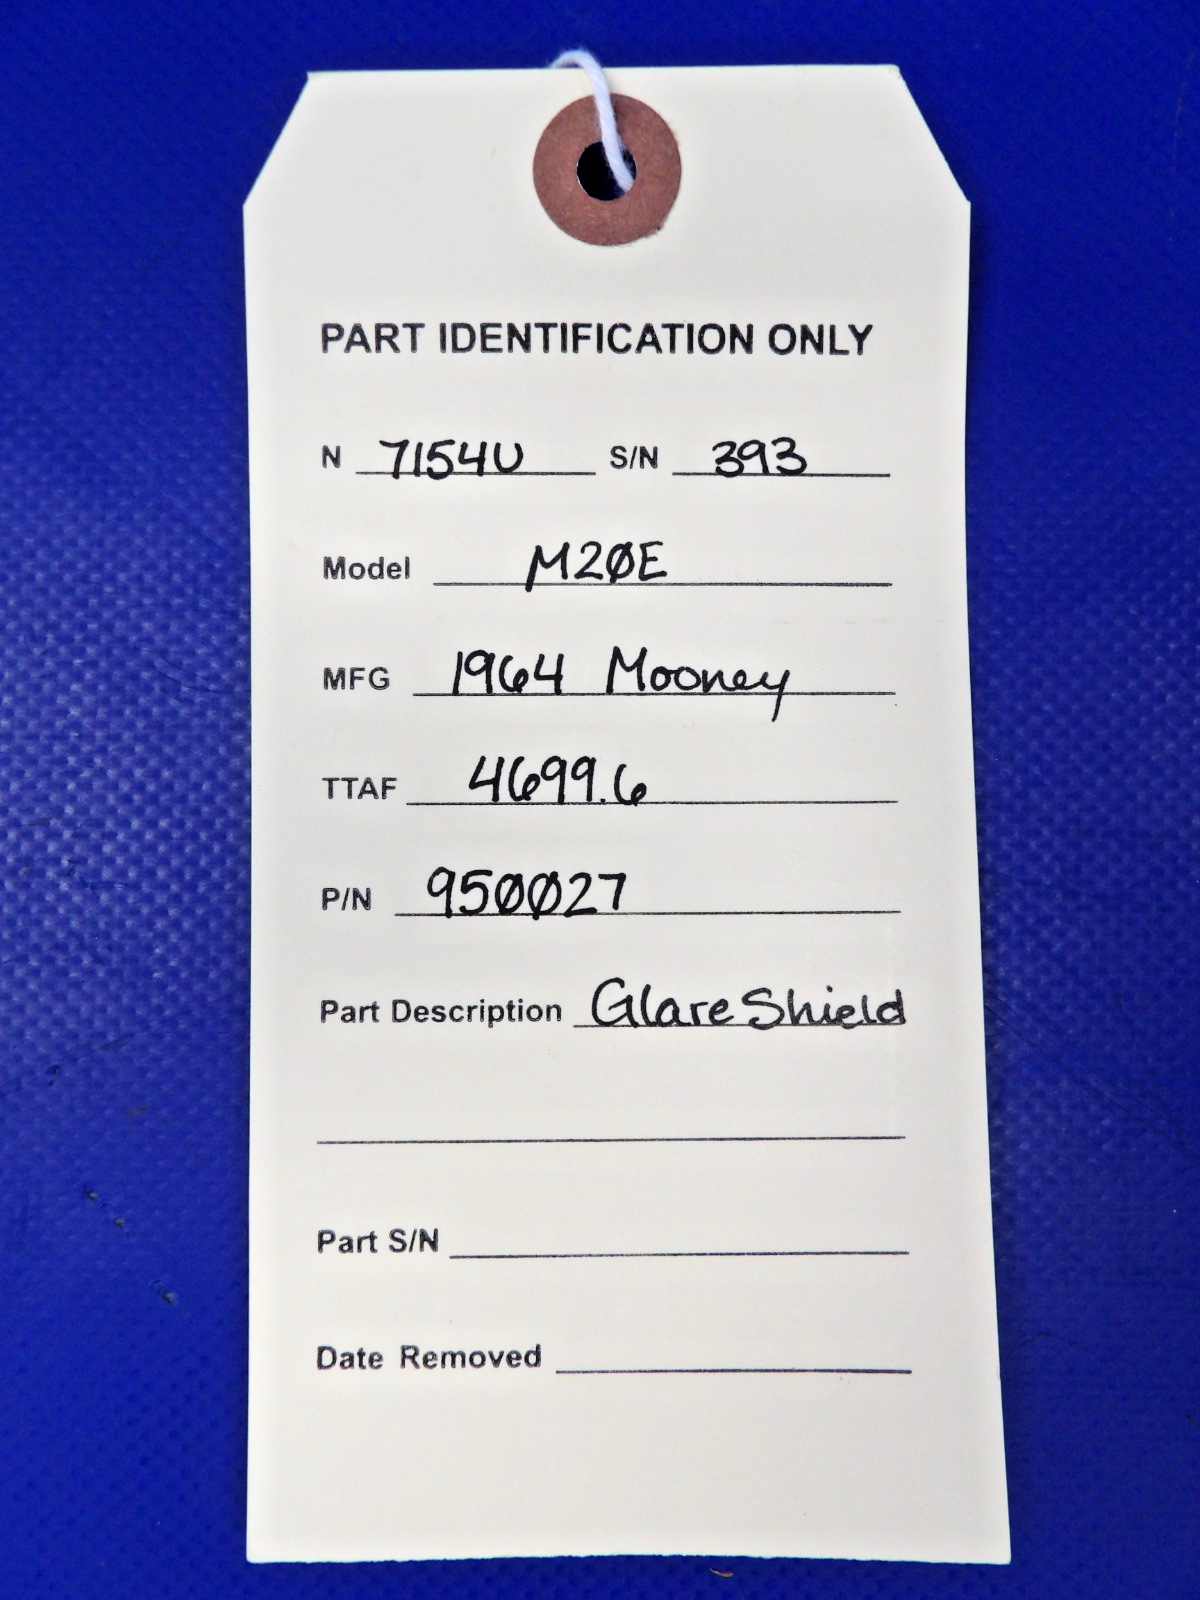 PART IDENTIFICATION ONLY
N 7154U S/N 393
Model M20E
MFG 1964 Mooney
TTAF 4699.6
P/N 950027
Part Description Glare Shield
Part S/N
Date Removed